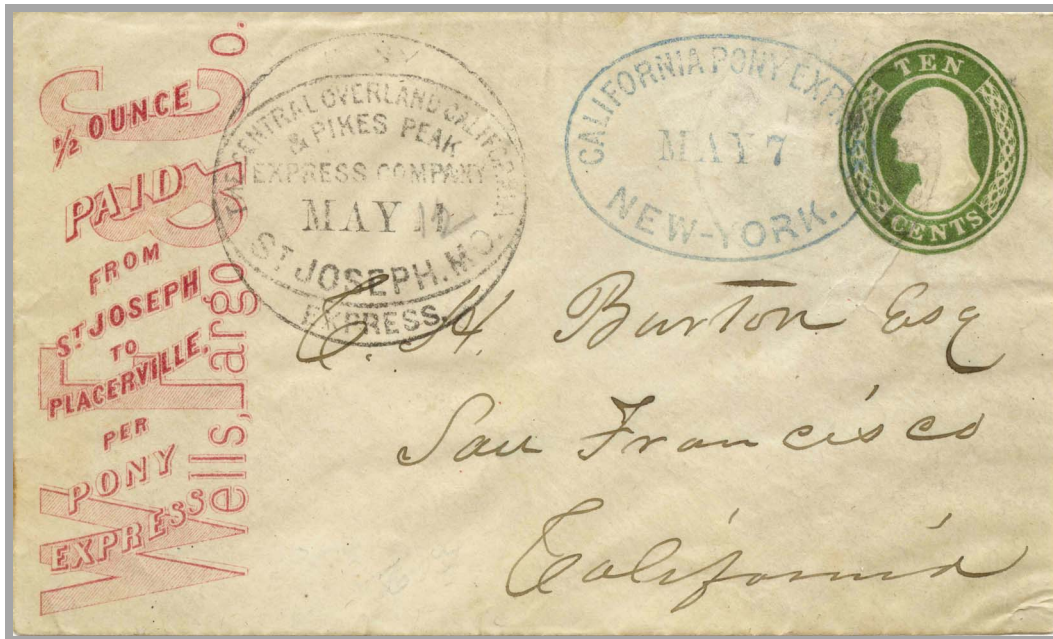 ½ OUNCE
PAID
FROM
ST JOSEPH
TO
PLACERVILLE.
PER
PONY
EXPRESS
W F & Co.
Wells, Fargo
THE CENTRAL OVERLAND CALIFORNIA
& PIKES PEAK
EXPRESS COMPANY
MAY
ST JOSEPH. MO.
EXPRESS.
CALIFORNIA PONY EXPRESS
MAY 7
NEW-YORK.
TEN
CENTS
C. H. Burton Esq
San Francisco
California